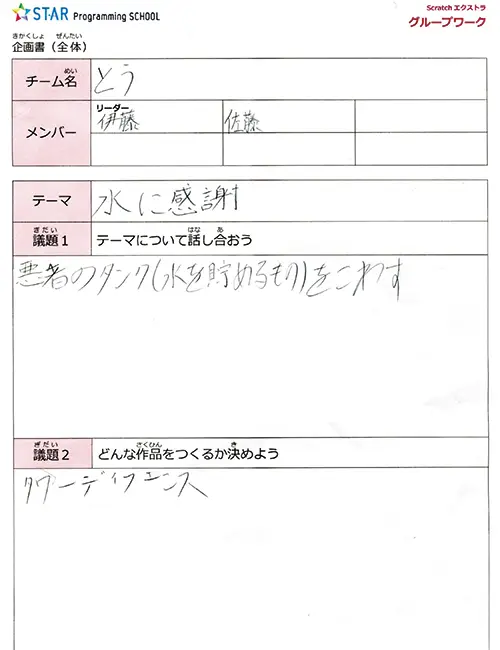 STAR Programming SCHOOL
Scratch エクストラ
グループワーク
きかくしょ ぜんたい
企画書（全体）
めい
チーム名
とう
リーダー
メンバー
伊藤
佐藤
テーマ
水に感謝
ぎだい
議題1
はな あ
テーマについて話し合おう
悪者のタンク(水を貯めるもの)をこわす
ぎだい
議題2
さくひん き
どんな作品をつくるか決めよう
タワーディフェンス